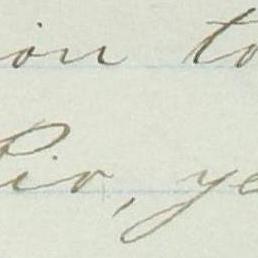 ion to
Pio, ye